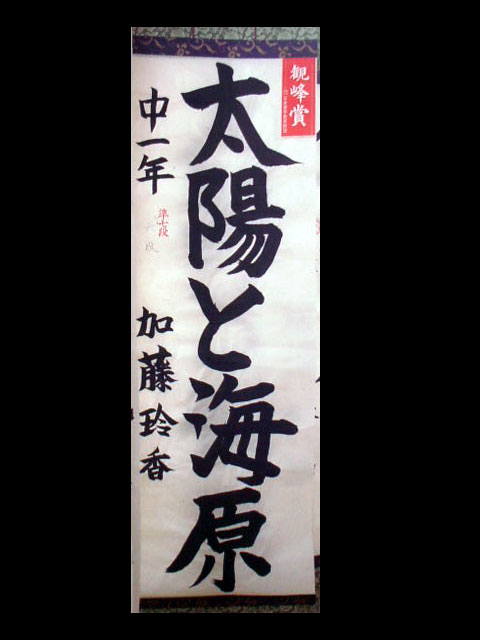 観峰賞
太陽と海原
中一年
準七段
加藤玲香